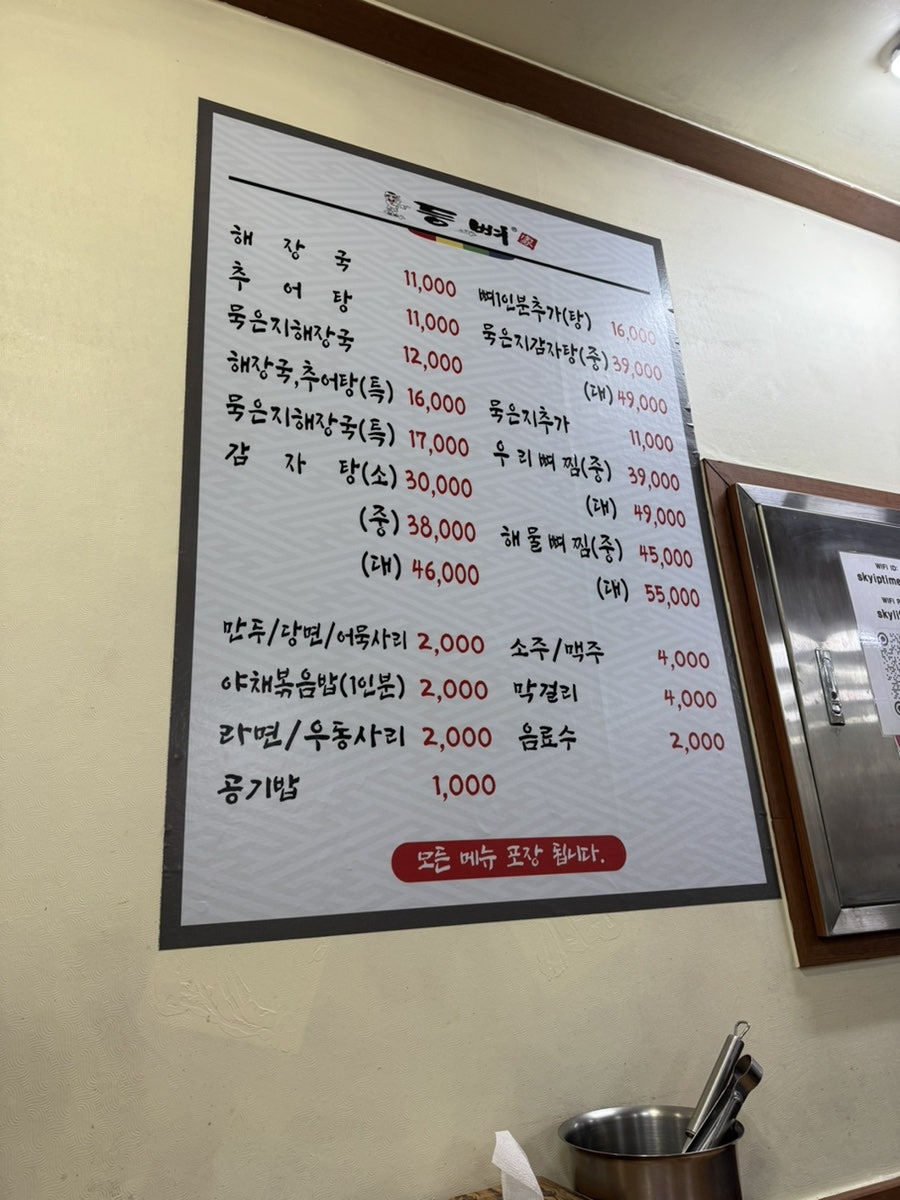 등뼈
해장국 11,000
추어탕 11,000
묵은지해장국 12,000
해장국,추어탕(특) 16,000
묵은지해장국(특) 17,000
감자탕(소) 30,000
(중) 38,000
(대) 46,000
뼈1인분추가(탕) 16,000
묵은지감자탕(중) 39,000
(대) 49,000
묵은지추가 11,000
우리뼈찜(중) 39,000
(대) 49,000
해물뼈찜(중) 45,000
(대) 55,000
만두/당면/어묵사리 2,000
야채볶음밥(1인분) 2,000
라면/우동사리 2,000
공기밥 1,000
소주/맥주 4,000
막걸리 4,000
음료수 2,000
모든 메뉴 포장 됩니다.
WIFI ID:
skyiptime
WIFI